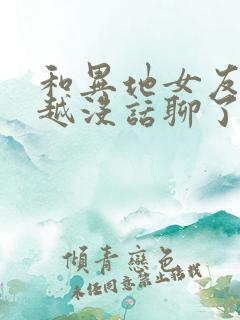 和異地女友
越沒話聊了
傾青戀色
未經同意禁止搭載